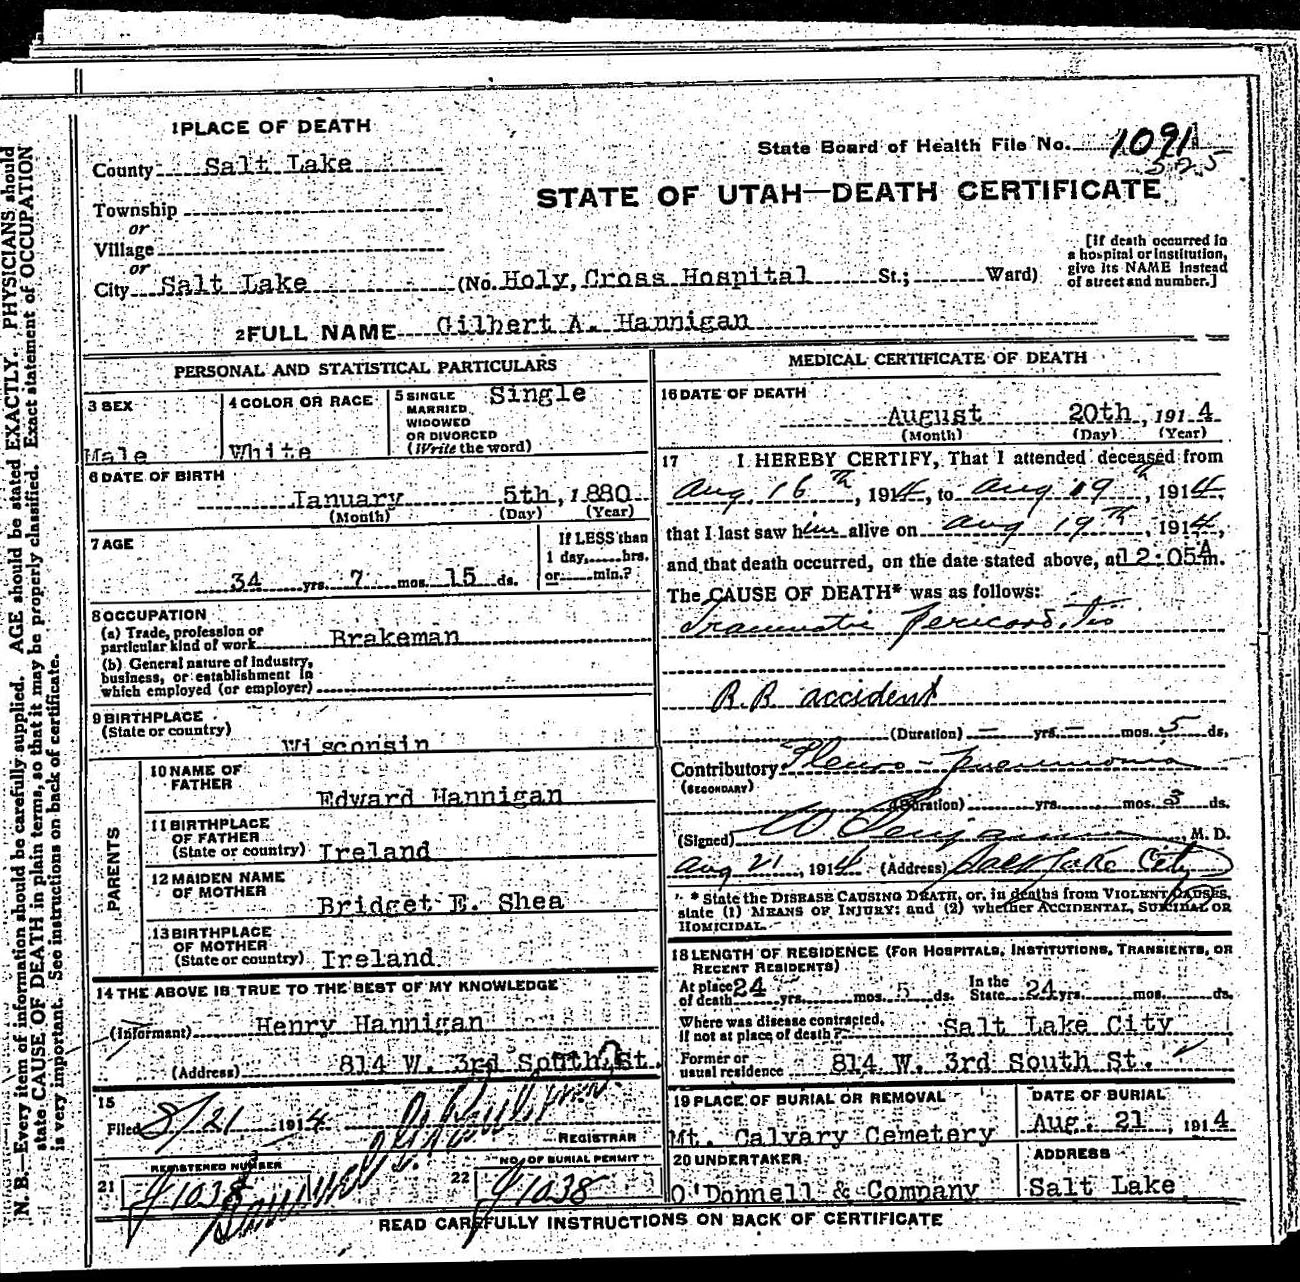 1 PLACE OF DEATH
County Salt Lake
Township
or
Village
or
City Salt Lake (No. Holy Cross Hospital St.; Ward)
State Board of Health File No. 1091
525
STATE OF UTAH—DEATH CERTIFICATE
[If death occurred in
a hospital or institution,
give its NAME instead
of street and number.]
2 FULL NAME Gilbert A. Hannigan
PERSONAL AND STATISTICAL PARTICULARS
3 SEX
Male
4 COLOR OR RACE
White
5 SINGLE
MARRIED
WIDOWED
OR DIVORCED
(Write the word)
Single
6 DATE OF BIRTH
January 5th, 1880
(Month) (Day) (Year)
7 AGE
34 yrs. 7 mos. 15 ds.
If LESS than
1 day, hrs.
or min.?
8 OCCUPATION
(a) Trade, profession or
particular kind of work Brakeman
(b) General nature of industry,
business, or establishment in
which employed (or employer)
9 BIRTHPLACE
(State or country)
Wisconsin
PARENTS
10 NAME OF
FATHER
Edward Hannigan
11 BIRTHPLACE
OF FATHER
(State or country) Ireland
12 MAIDEN NAME
OF MOTHER
Bridget E. Shea
13 BIRTHPLACE
OF MOTHER
(State or country) Ireland
14 THE ABOVE IS TRUE TO THE BEST OF MY KNOWLEDGE
(Informant) Henry Hannigan
(Address) 814 W. 3rd South St.
15
Filed 8/21 1914
REGISTRAR
21 REGISTERED NUMBER
J1038
22 NO. OF BURIAL PERMIT
J1038
MEDICAL CERTIFICATE OF DEATH
16 DATE OF DEATH
August 20th, 1914
(Month) (Day) (Year)
17 I HEREBY CERTIFY, That I attended deceased from
Aug 16th, 1914, to Aug 19th, 1914,
that I last saw him alive on Aug 19th, 1914,
and that death occurred, on the date stated above, at 12:05 A m.
The CAUSE OF DEATH* was as follows:
Traumatic Pericarditis
R.R. accident
(Duration) — yrs. — mos. 5 ds.
Contributory Pleuro-pneumonia
(SECONDARY)
(Duration) yrs. mos. 3 ds.
(Signed) W Benjamin, M. D.
Aug 21, 1914 (Address) Salt Lake City
* State the DISEASE CAUSING DEATH, or, in deaths from VIOLENT CAUSES,
state (1) MEANS OF INJURY; and (2) whether ACCIDENTAL, SUICIDAL OR
HOMICIDAL.
18 LENGTH OF RESIDENCE (FOR HOSPITALS, INSTITUTIONS, TRANSIENTS, OR
RECENT RESIDENTS)
At place
of death 24 yrs. mos. 5 ds. In the
State 24 yrs. mos. ds.
Where was disease contracted,
if not at place of death? Salt Lake City
Former or
usual residence 814 W. 3rd South St.
19 PLACE OF BURIAL OR REMOVAL
Mt. Calvary Cemetery
DATE OF BURIAL
Aug. 21, 1914
20 UNDERTAKER
O'Donnell & Company
ADDRESS
Salt Lake
READ CAREFULLY INSTRUCTIONS ON BACK OF CERTIFICATE
N. B.—Every item of information should be carefully supplied. AGE should be stated EXACTLY. PHYSICIANS should
state CAUSE OF DEATH in plain terms, so that it may be properly classified. Exact statement of OCCUPATION
is very important. See instructions on back of certificate.